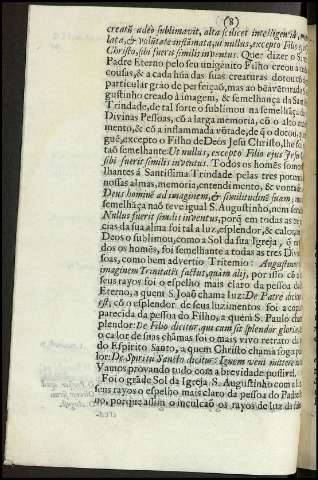 (8)
creatū adeò sublimavit, alta scilicet intelligentiâ,
lata, & volūtate inflāmata, ut nullus, excepto Filio
Christo, sibi fuerit similis inventus. Quer dizer o S.
Padre Eterno pelo seu unigenito Filho creou a
cousas, & a cada hūa das suas creaturas dotou cō
particular grao de perfeiçaõ, mas ao beaventurado
gustinho creado à imagem, & semelhança da San
Trindade, de tal sorte o sublimou na semelhāça
Divinas Pessoas, cō a larga memoria, cō o alto
mento, & cō a inflammada vōtade, de q̃ o dotou,
guẽ, excepto o Filho de Deos Jesu Christo, lhe
taõ semelhante: Ut nullus, excepto Filio ejus Jesu
sibi fuerit similis inventus. Todos os homēs
lhantes á Santissima Trindade pelas tres potencias
nossas almas, memoria, entendimento, & vontade
Deus hominē ad imaginem, & similitudinē suam,
semelhāça naõ teve igual S. Augustinho, nem
Nullus fuerit similis inventus, porq̃ em todas as
cias da sua alma foi tal a luz, esplendor, & calor,
Deos o sublimou, como a Sol da sua Igreja, q̃
dos os homēs, foi semelhante a todas as tres Divi
soas, como bem advertio Tritemio: Augustinus
imaginem Trinitatis factus, quàm alij, por isso cō a
seus rayos foi o espelho mais claro da pessoa
Eterno, a quem S. Joaõ chama luz: De Patre dicit
est; cō o esplendor de seus luzimentos foi a copia
parecida da pessoa do Filho, a quem S. Paulo cha
plendor: De Filio dicitur, qui cum sit splendor gloriæ
o calor de suas chāmas foi o mais vivo retrato da
do Espirito Santo, a quem Christo chama fogo
lor: De Spiritu Sancto dicitur: Ignem veni mittere
Vamos provando tudo com a brevidade possivel.
Foi o grāde Sol da Igreja S. Augustinho com a luz
seus rayos o espelho mais claro da pessoa do Padre
no, porque assim o inculcaõ os rayos de luz da